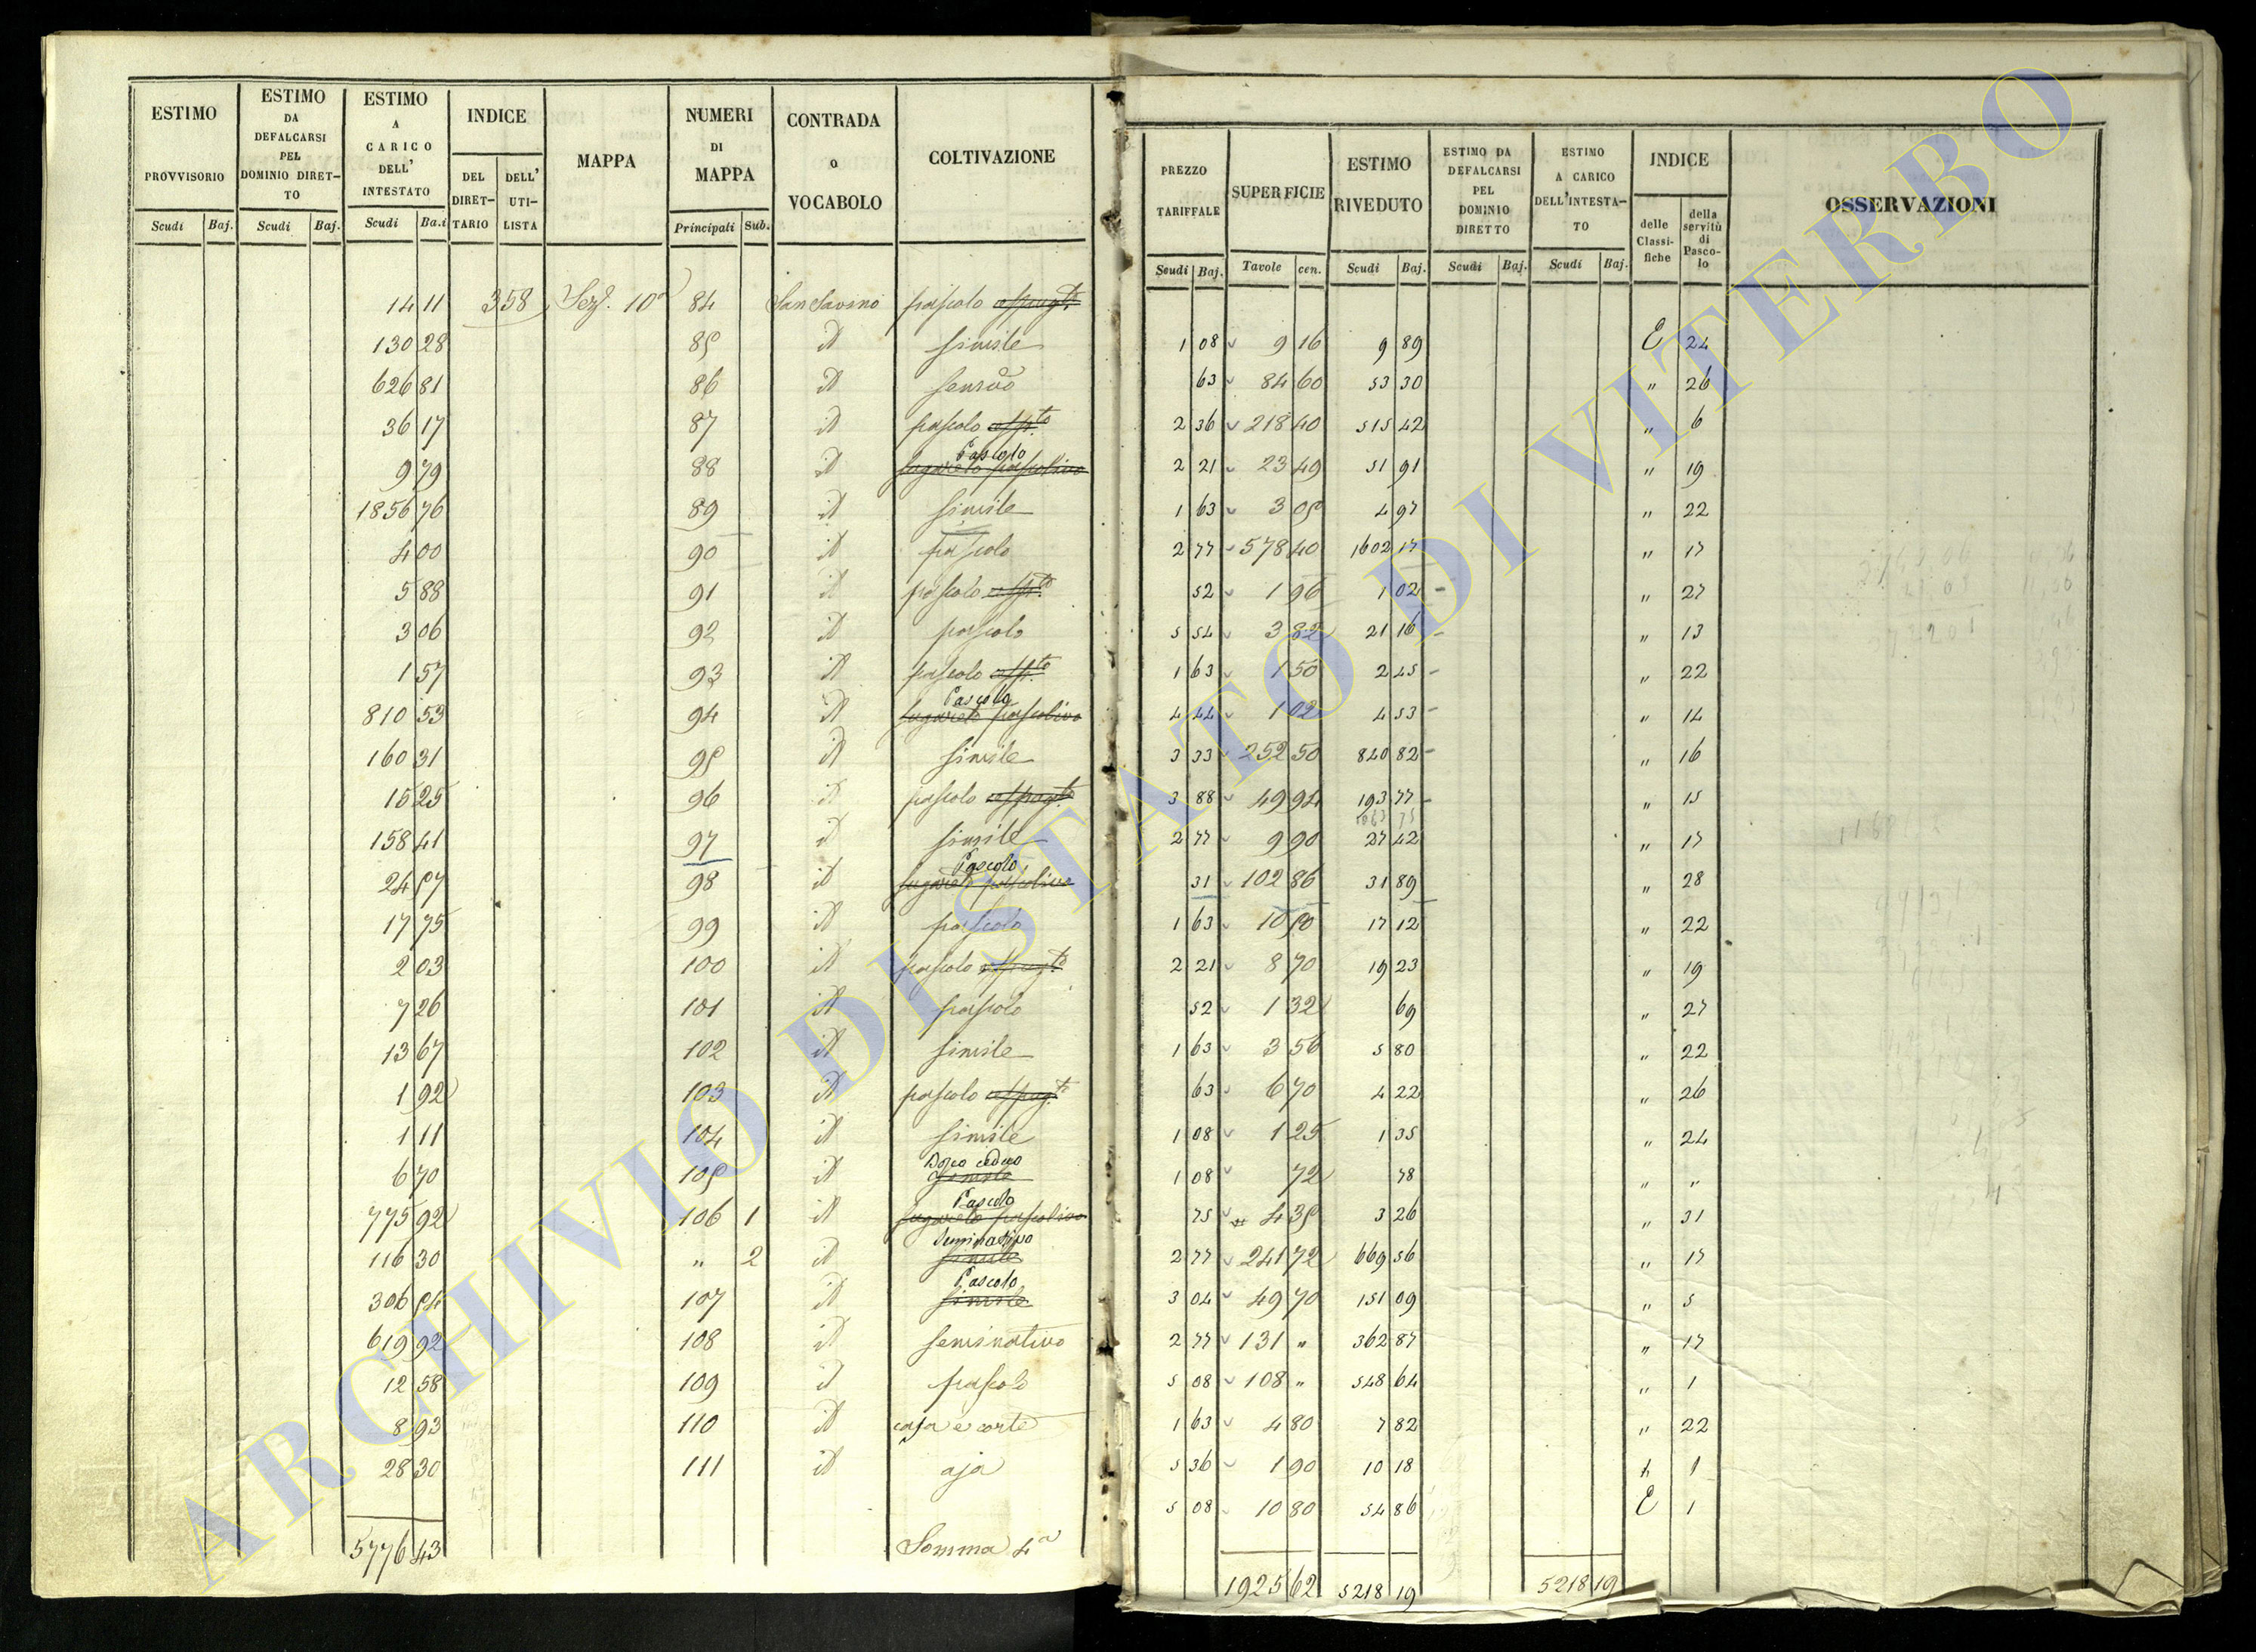 ESTIMO PROVVISORIO Scudi Baj.
ESTIMO DA DEFALCARSI PEL DOMINIO DIRET-TO Scudi Baj.
ESTIMO A CARICO DELL' INTESTATO Scudi Ba.i
INDICE DEL DIRET-TARIO DELL' UTI-LISTA
MAPPA
NUMERI DI MAPPA Principali Sub.
CONTRADA o VOCABOLO
COLTIVAZIONE
14 11 358 Sez. 10a 84 San Savino pascolo
130 28 85 id simile
626 81 86 id
36 17 87 id pascolo
9 79 88 id Pascolo
1856 76 89 id simile
4 00 90 id pascolo
5 88 91 id pascolo
3 06 92 id pascolo
1 57 93 id pascolo
810 53 94 id Pascolo
160 31 95 id simile
15 25 96 id pascolo
158 41 97 id simile
24 57 98 id Pascolo
17 75 99 id pascolo
2 03 100 id pascolo
7 26 101 id pascolo
13 67 102 id simile
1 92 103 id pascolo
1 11 104 id simile
6 70 105 id Bosco ceduo simile
775 92 106 1 id Pascolo
116 30 " 2 id Seminativo simile
306 54 107 id Pascolo simile
619 92 108 id seminativo
12 58 109 id pascolo
8 93 110 id casa e corte
28 30 111 id aja
5776 43 Somma 4a
PREZZO TARIFFALE Scudi Baj.
SUPERFICIE Tavole cen.
ESTIMO RIVEDUTO Scudi Baj.
ESTIMO DA DEFALCARSI PEL DOMINIO DIRETTO Scudi Baj.
ESTIMO A CARICO DELL'INTESTA-TO Scudi Baj.
INDICE delle Classi-fiche della servitù di Pasco-lo
OSSERVAZIONI
1 08 9 16 9 89 E 24
63 84 60 53 30 " 26
2 36 218 40 515 42 " 6
2 21 23 49 51 91 " 19
1 63 3 05 4 97 " 22
2 77 578 40 1602 17 " 17
52 1 96 1 02 " 27
5 54 3 82 21 16 " 13
1 63 1 50 2 45 " 22
4 44 1 02 4 53 " 14
3 33 252 50 840 82 " 16
3 88 49 94 193 77 " 15
2 77 9 90 27 42 " 17
31 102 86 31 89 " 28
1 63 10 50 17 12 " 22
2 21 8 70 19 23 " 19
52 1 32 69 " 27
1 63 3 56 5 80 " 22
63 6 70 4 22 " 26
1 08 1 25 1 35 " 24
1 08 72 78 " "
75 4 35 3 26 " 31
2 77 241 72 669 56 " 17
3 04 49 70 151 09 " 5
2 77 131 " 362 87 " 17
5 08 108 " 548 64 " 1
1 63 4 80 7 82 " 22
5 36 1 90 10 18 1
5 08 10 80 54 86 E 1
1925 62 5218 19 5218 19
ARCHIVIO DI STATO DI VITERBO